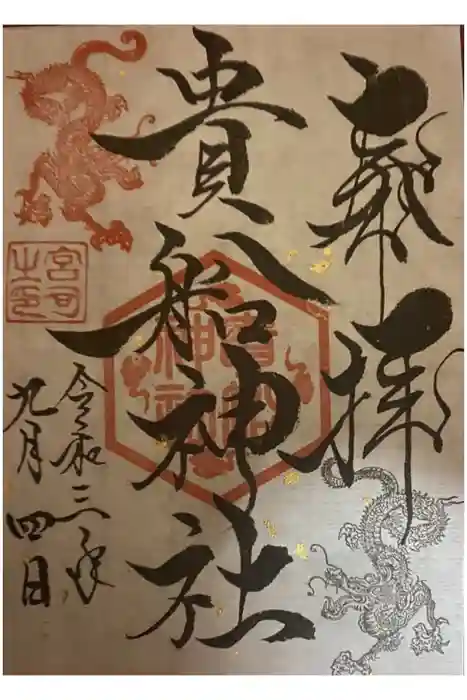 奉拝
貴船神社
令和三年
九月四日
貴船
神社
宮司
之印